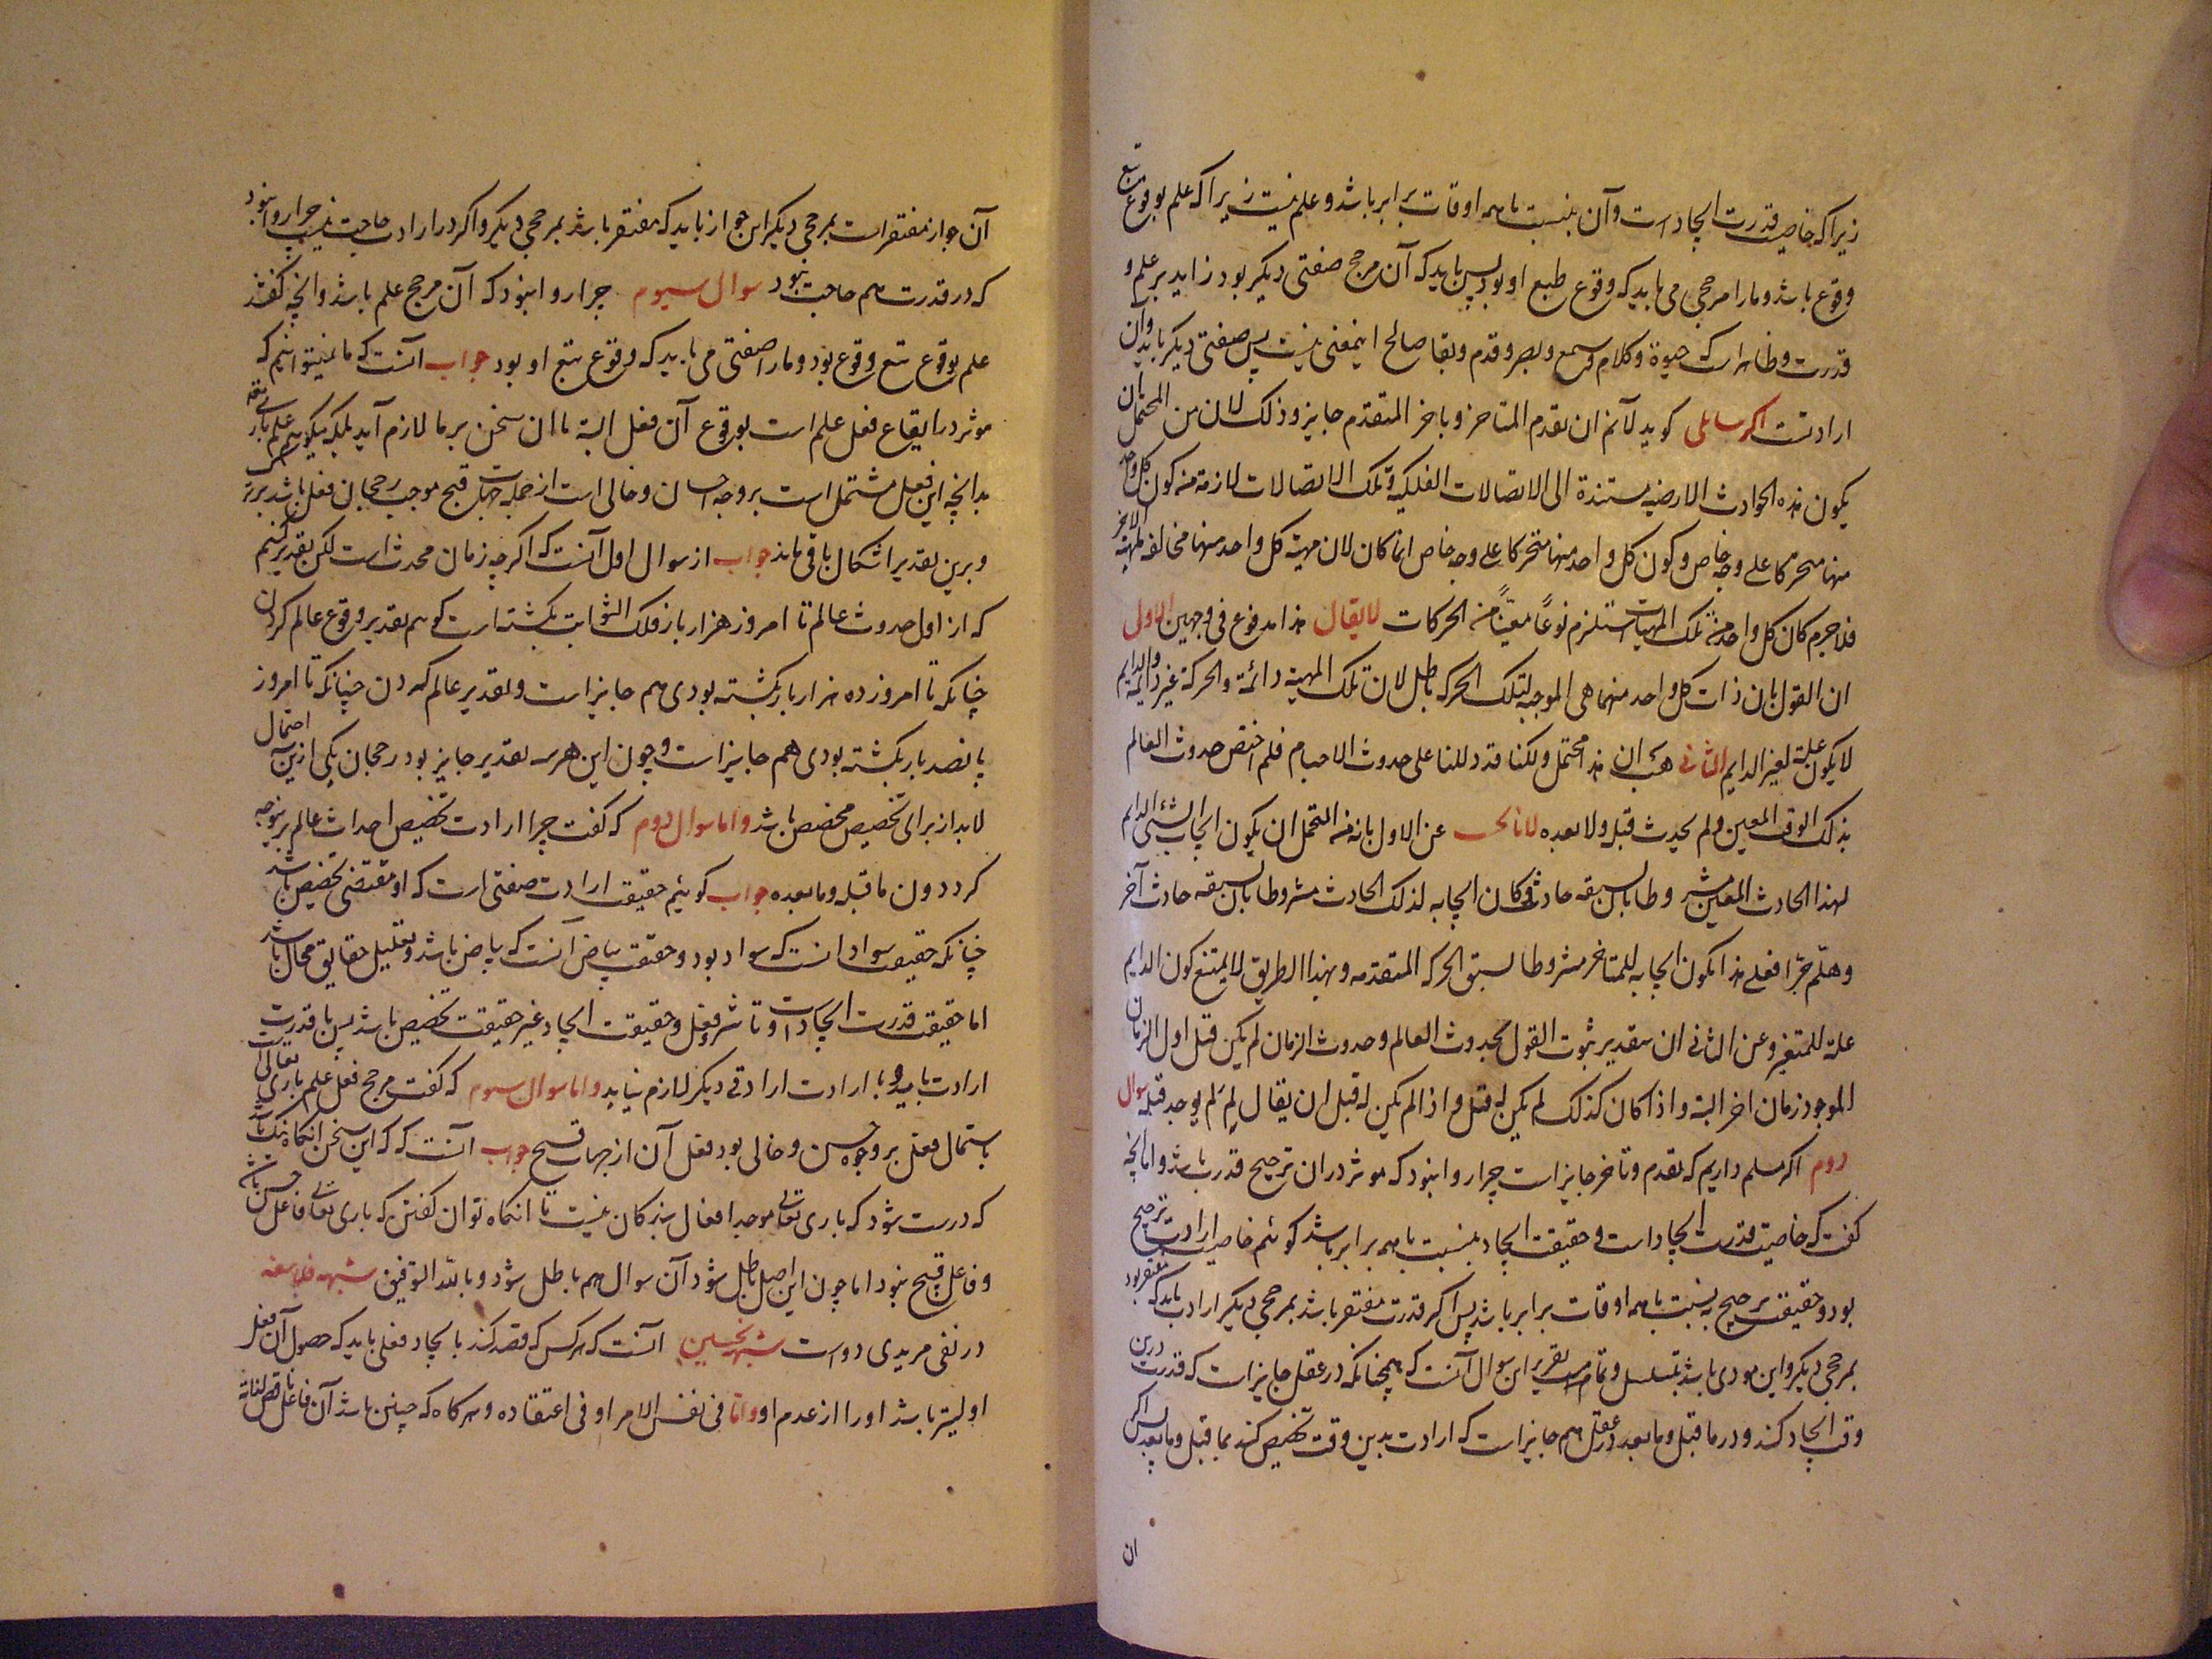 زیرا که خاصیت قدرت ایجاد است و آن بنسبت با همه اوقات برابر باشد و علم نیست زیرا که علم بوقوع تبع
وقوع باشد و ما را مرجحی می باید که وقوع طبع او بود پس باید که آن مرجح صفتی دیگر بود زاید بر علم و
قدرت و ظاهر است که حیوة و کلام و سمع و بصر و قدم و بقا صالح اینمعنی نیست پس صفتی دیگر باید و آن
ارادتست اگر سایلی گوید لانم ان تقدم المتاخر و تاخر المتقدم جایز و ذلک لان من المحتمل ان
یکون هذه الحوادث الارضیه مستندة الی الاتصالات الفلکیه و تلک الاتصالات لازمة من کون کل واحد
منها متحرکا علی وجه خاص و کون کل واحد منها متحرکا علی وجه خاص انما کان لان مهیة کل واحد منها مخالفه لمهیة الآخر
فلا جرم کان کل واحد من تلک المهیات استلزم نوعاً معیناً من الحرکات لا یقال هذا مدفوع فی وجهین الاول
ان القول بان ذات کل واحد منهما هی الموجبة لتلک الحرکه باطل لان تلک المهیة دائمة و الحرکة غیر دائمة و الدایم
لا یکون علة لغیر الدایم الثانی هب ان هذا محتمل و لکنا قد دللنا علی حدوث الاجسام فلم اختص حدوث العالم
بذلک الوقت المعین و لم یحدث قبله و لا بعده لانا نجیب عن الاول بانه من المحتمل ان یکون ایجاب الشئ الدایم
لهذا الحادث المعین مشروطا بان سبقه حادث و کان ایجابه لذلک الحادث مشروطا بان سبقه حادث آخر
و هلّم جرّا فعلی هذا یکون ایجابه للمتاخر مشروطا بسبق الحرکه المتقدمه و بهذا الطریق لا یمتنع کون الدایم
علة للمتغیر و عن الثانی ان بتقدیر ثبوت القول بحدوث العالم و حدوث الزمان لم یکن قبل اول الزمان
الموجود زمان اخر البتة و اذا کان کذلک لم یکن له قبل و اذا لم یکن له قبل ان یقال لِمَ لم یوجد قبله سوال
دوم اگر مسلم داریم که تقدم و تاخر جایز است چرا روا نبود که موثر در ان ترجیح قدرت باشد و اما انچه
گفت که خاصیت قدرت ایجاد است و حقیقت ایجاد بنسبت با همه برابر باشد گوئیم خاصیت ارادت ترجیح
بود و حقیقت ترجیح به نسبت با همه اوقات برابر باشد پس اگر قدرت مفتقر باشد بمرجحی دیگر ارادت باید که مفتقر بود
بمرجحی دیگر و این مودی باشد بتسلسل و تمامیت تقریر این سوال آنست که همچنانکه در عقل جایز است که قدرت درین
وقت ایجاد کند و در ما قبل و ما بعد در عقل هم جایز است که ارادت بدین وقت تخصیص کند بما قبل و ما بعد پس اگر
ان
آن جواز مفتقر است بمرجحی دیگر این جواز باید که مفتقر باشد بمرجحی دیگر و اگر در ارادت حاجت نیست چرا روا نبود
که در قدرت هم حاجت نبود سوال سیوم چرا روا نبود که آن مرجح علم باشد و انچه گفتند
علم بوقوع تبع وقوع بود و ما را صفتی می باید که وقوع تبع او بود جواب آنست که ما نمیتوانیم که
موثر در ایقاع فعل علم است بوقوع آن فعل البته تا ان سخن بر ما لازم آید بلکه میگوییم علم باری تعالی
بدانچه این فعل مشتمل است بر وجه احسان و خالی است از جمله جهات قبح موجب رجحان فعل باشد بر ترک
و برین تقدیر اشکال باقی ماند جواب از سوال اول آنست که اگرچه زمان محدث است لکن تقدیر کنیم
که از اول حدوث عالم تا امروز هزار بار فلک الثوابت بگشته است گوییم تقدیر وقوع عالم کردن
چنانکه تا امروز ده هزار بار بگشته بودی هم جایز است و تقدیر عالم کردن چنانکه تا امروز
پانصد بار بگشته بودی هم جایز است و چون این هر سه تقدیر جایز بود رجحان یکی ازین احتمال
لابد از برای تخصیص مخصص باشد و اما سوال دوم که گفت چرا ارادت تخصیص احداث عالم بر ینوجه
کرد دون ما قبله و ما بعده جواب گوئیم حقیقت ارادت صفتی است که او مقتضی تخصیص باشد
چنانکه حقیقت سواد انست که سواد بود و حقیقت بیاض آنست که بیاض باشد و تعلیل حقایق محال باشد
اما حقیقت قدرت ایجاد است و تاثیر و فعل و حقیقت ایجاد غیر حقیقت تخصیص باشد پس با قدرت
ارادت باید و با ارادت ارادتی دیگر لازم نیاید و اما سوال سیوم که گفت مرجح فعل علم باری تعالی
باشتمال فعل بر وجوه حسن و خالی بود فعل آن از جهات قبح جواب آنست که که این سخن انگاه نیک باشد
که درست شود که باری تعالی موجد افعال بندگان نیست تا انگاه توان گفتن که باری تعالی فاعل حسن باشد
و فاعل قبیح نبود اما چون این اصل باطل شود آن سوال هم باطل شود و بالله التوفیق شبهه فلاسفه
در نفی مریدی دو است شبهه نخستین آنست که هر کس که قصد کند بایجاد فعلی باید که حصول آن فعل
اولیتر باشد او را از عدم او و اما فی نفس الامر او فی اعتقاده و هر گاه که چنین باشد آن فاعل ناقص لذاته